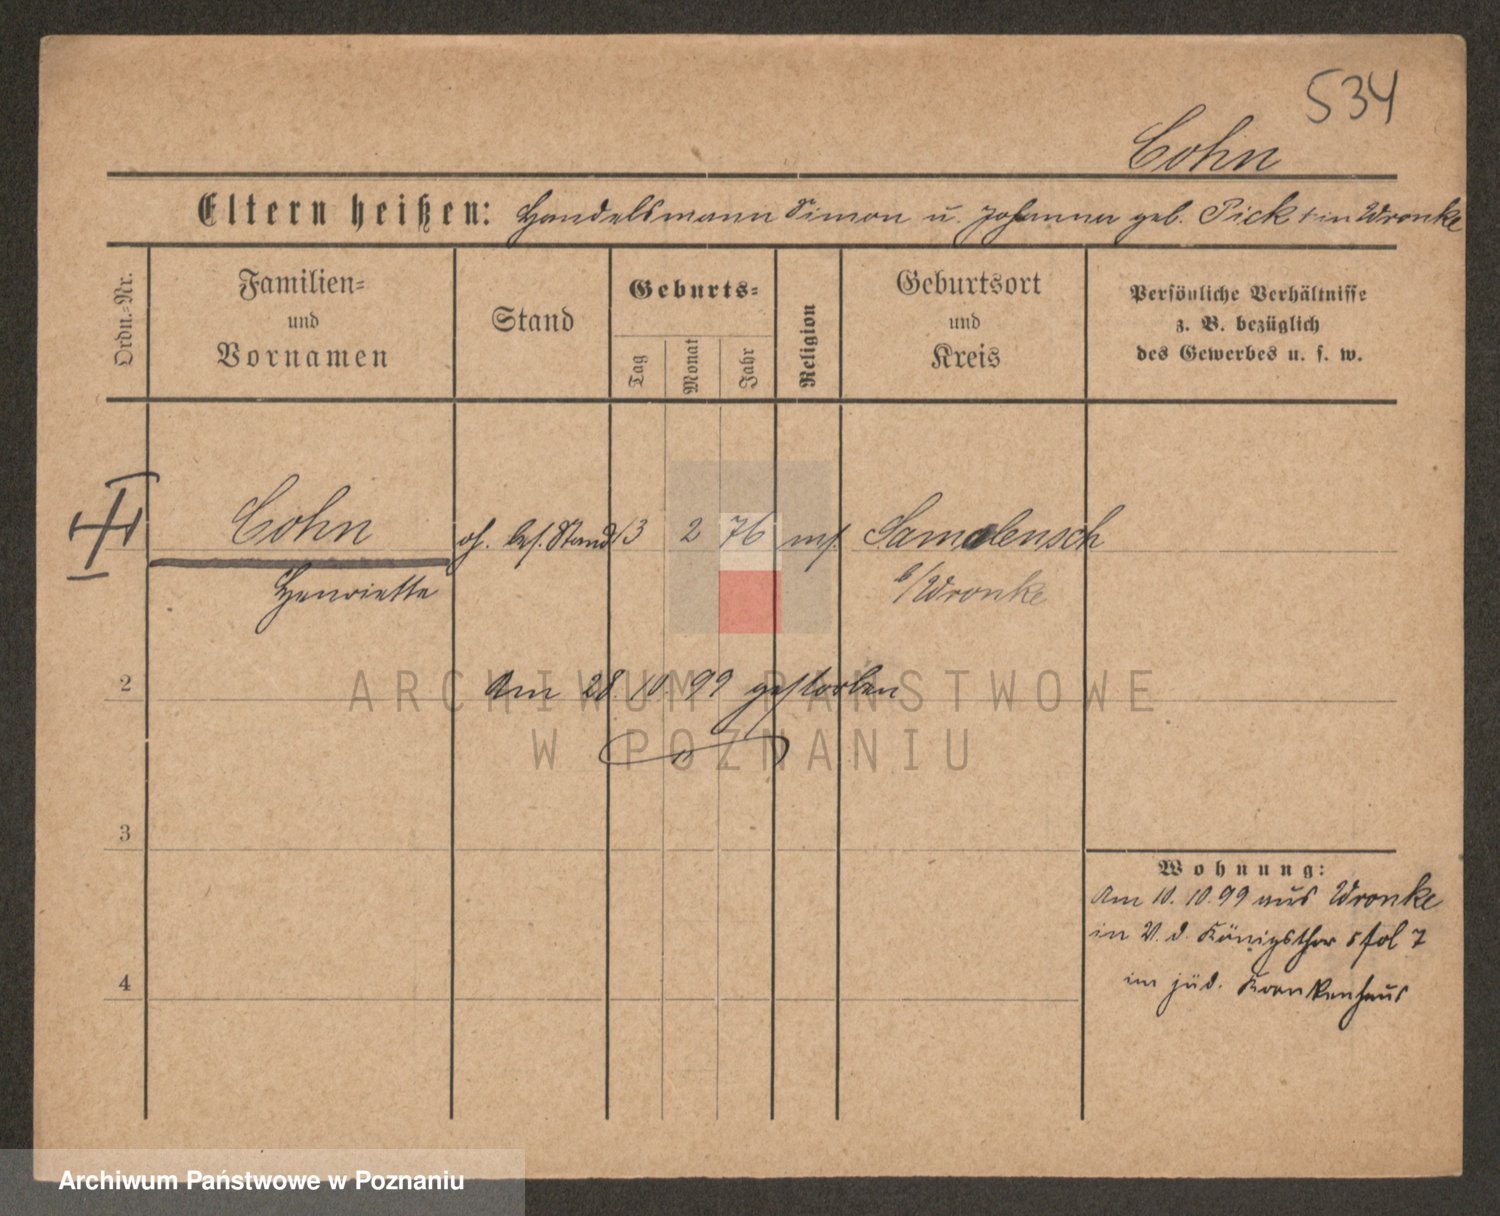 534
Cohn
Eltern heißen: Handelsmann Simon u. Johanna geb. Pick in Wronke
Ordn.-Nr.
Familien-
und
Vornamen
Stand
Geburts-
Tag
Monat
Jahr
Religion
Geburtsort
und
Kreis
Persönliche Verhältnisse
z. B. bezüglich
des Gewerbes u. s. w.
Cohn
oh. bes. Stand 13 2 76 mos. Samolensch
Henriette
b/Wronke
2
Am 28.10.99 gestorben
ARCHIWUM PAŃSTWOWE
W POZNANIU
3
Wohnung:
Am 10.10.99 aus Wronke
in V. d. Königsthor 5 fol 7
4
im jüd. Krankenhaus
Archiwum Państwowe w Poznaniu